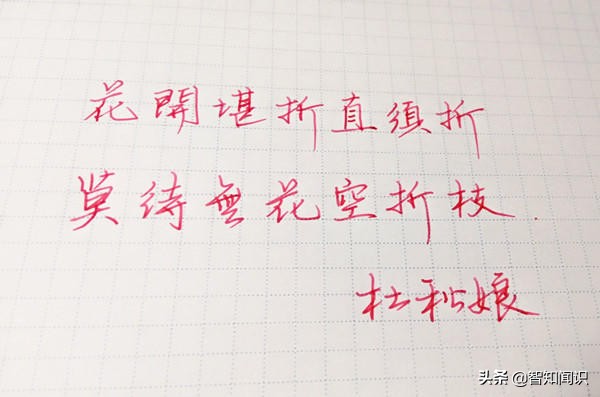 花開堪折直須折
莫待無花空折枝.
杜秋娘
头条 @智知闻识